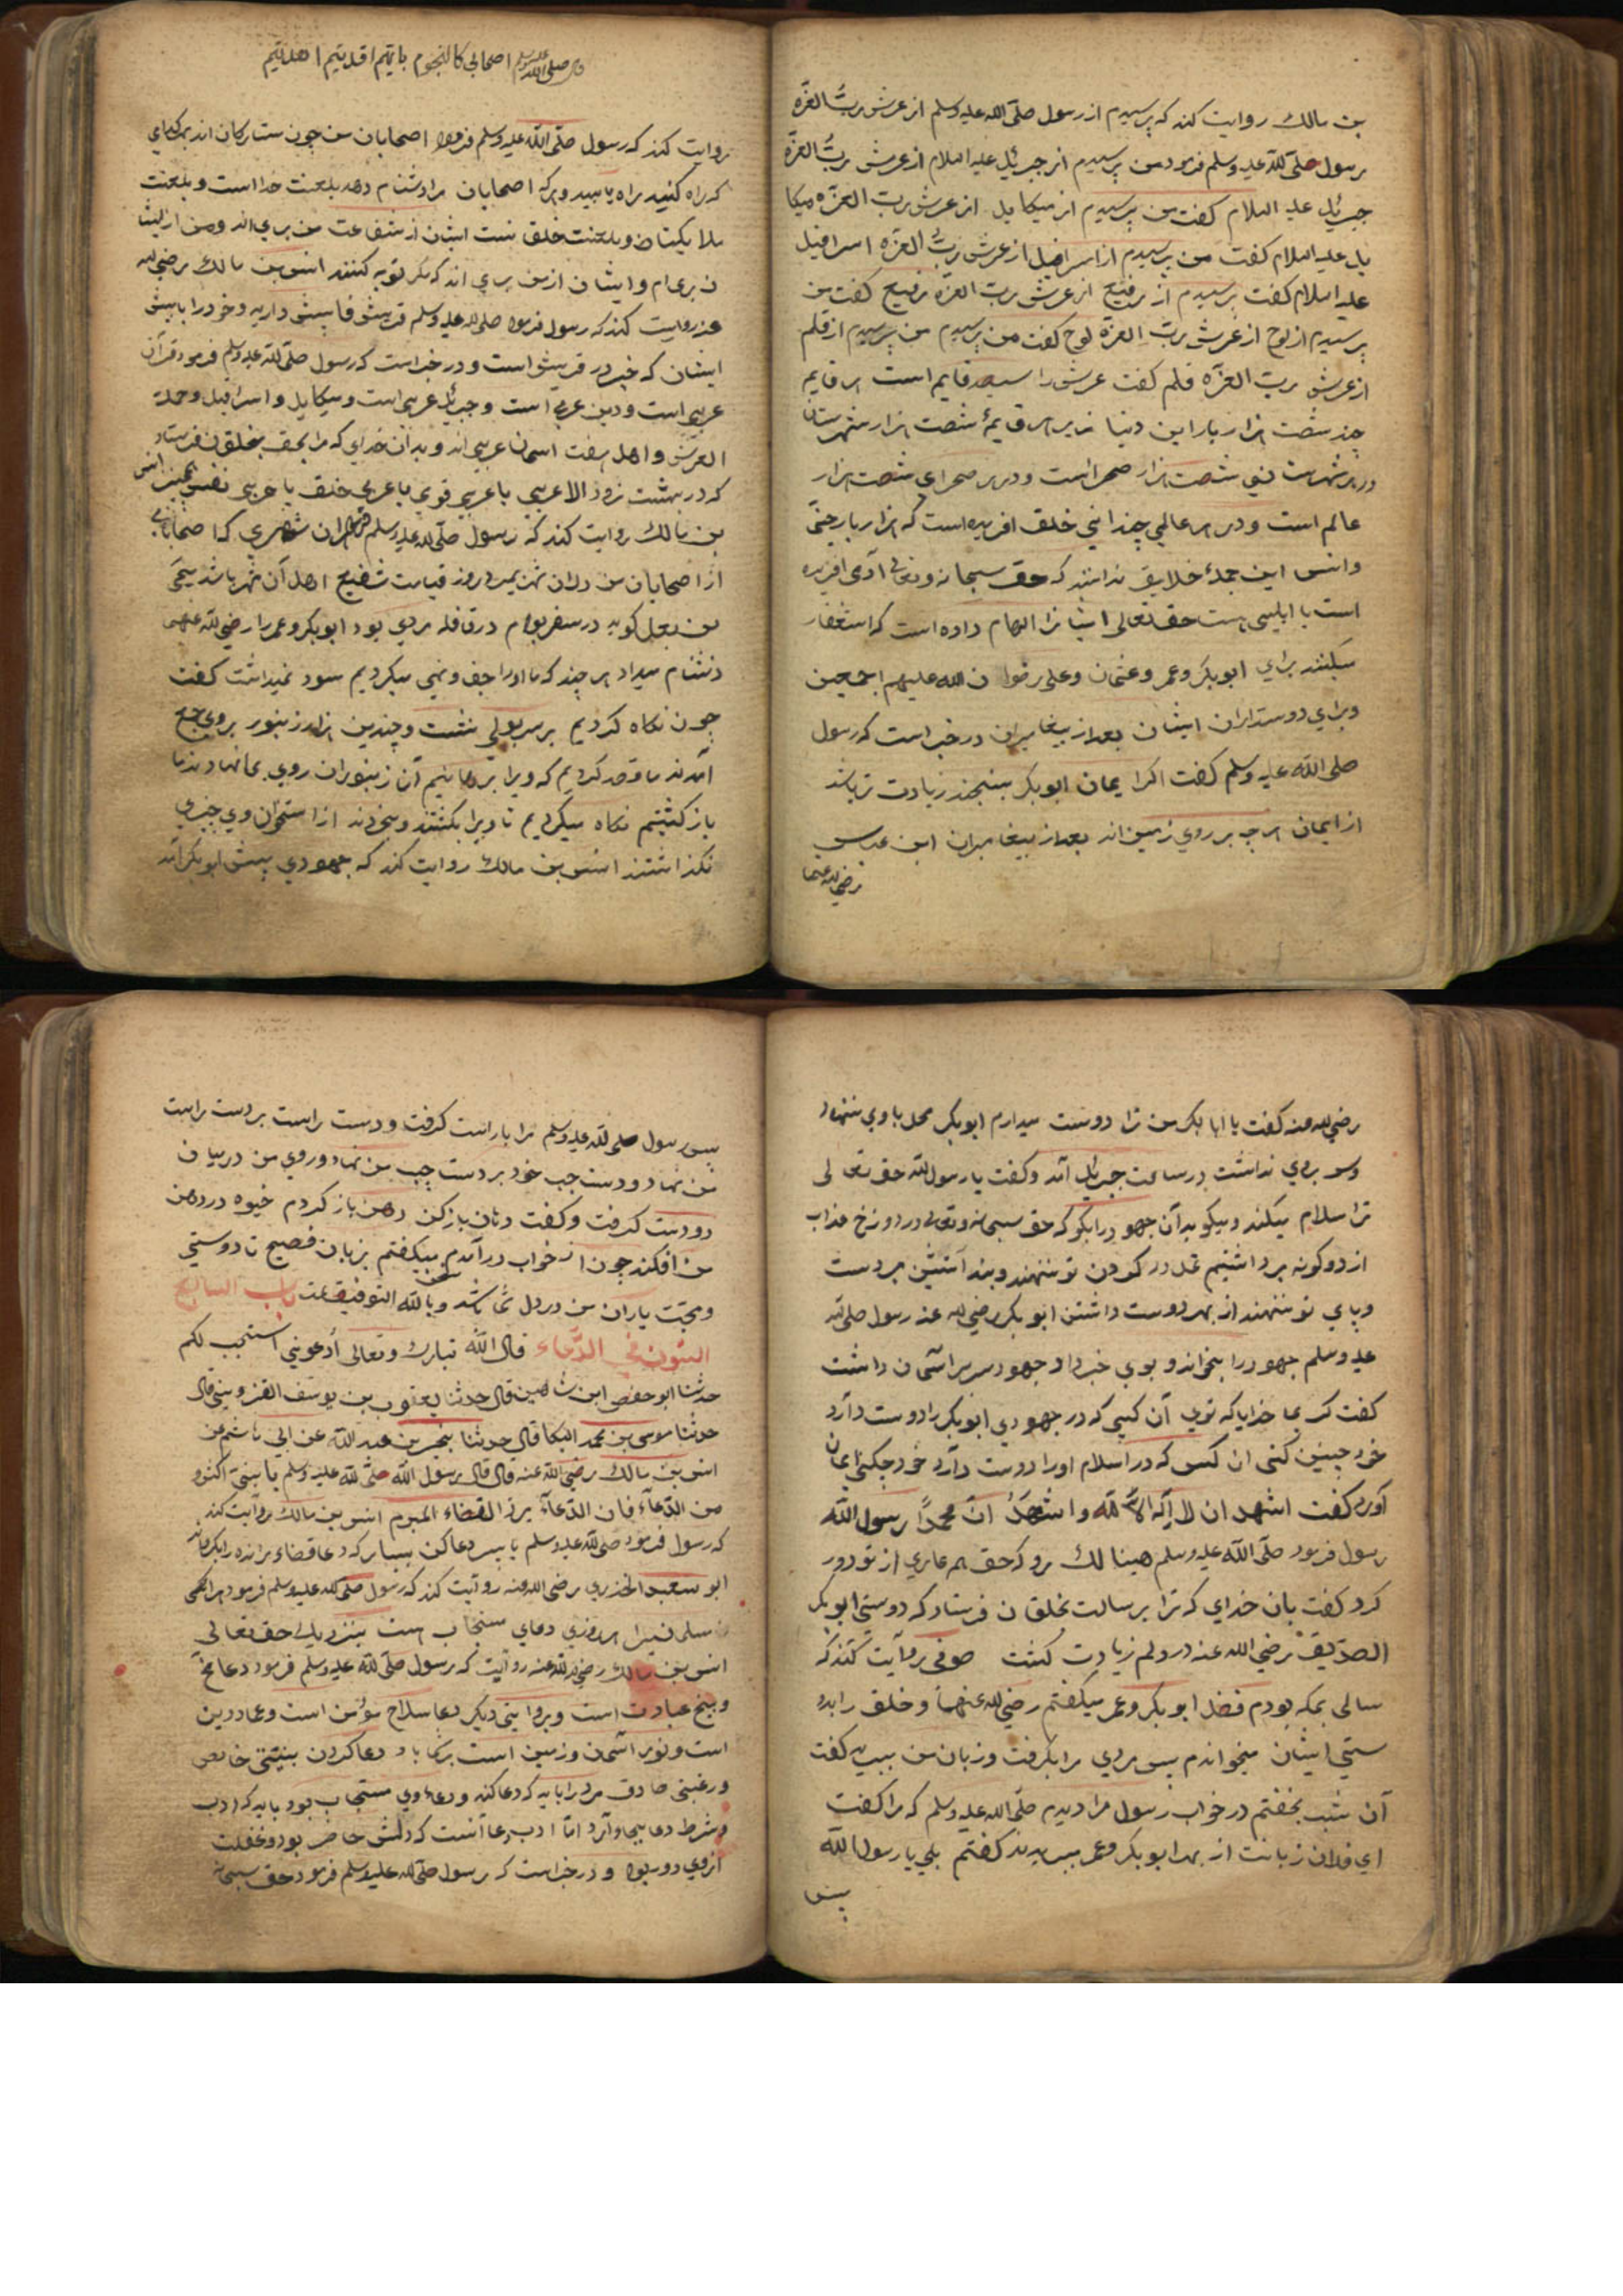 بن مالك روایت کند که پرسیدم از رسول صلّی الله علیه وسلم از عرش ربُّ العزّه
رسول صلّی الله علیه وسلم فرمود من پرسیدم از جبرئیل علیه السلام از عرش ربُّ العزّه
جبرئیل علیه السلام کفت من پرسیدم از میکاییل از عرش ربّ العزّه میکا
ییل علیه السلام کفت من پرسیدم از اسرافیل از عرش ربُّ العزّه اسرافیل
علیه السلام کفت پرسیدم از رفیع از عرش ربّ العزّه رفیع کفت من
پرسیدم از لوح از عرش ربّ العزّه لوح کفت من پرسیدم من پرسیدم از قلم
از عرش ربّ العزّه قلم کفت عرش را سیصد قایم است هر قایم
چند شصت هزار بار این دنیا زیر هر قایمهٔ شصت هزار شهرستان
در هر شهرستانی شصت هزار صحراست و در هر صحرای شصت هزار
عالم است و در هر عالمی چندانی خلق افریده است که هزار بار جنّ
وانس این جملهٔ خلایق ندانند که حق سبحانه وتعالی آدمی افریده
است یا ابلیسی هست حق تعالی ایشانرا الهام داده است که استغفار
میکنند برای ابوبکر وعمر وعثمان وعلی رضوان الله علیهم اجمعین
وبرای دوستداران ایشان بعد از پیغامبران در خبراست که رسول
صلی الله علیه وسلم کفت اکر ایمان ابوبکر بسنجند زیادت تر باشد
از ایمان هر چه بر روی زمین اند بعد از پیغامبران ابن عباس
رضی الله عنهما
قال صلی الله علیه وسلم اصحابی کالنجوم بایّهم اقتدیتم اهتدیتم
روایت کند که رسول صلّی الله علیه وسلم فرمود اصحابان من چون ستارکان اند بهر کدامی
که راه کنید راه یابید وهرکه اصحابان مرا دشنام دهد بلعنت خدا است و بلعنت
ملایکتان و بلعنت خلق است ایشان از شفاعت من بری اند ومن از ایشا
ن بری ام وایشان از من بری اند که مکر توبه کنند انس بن مالك رضی الله
عنه روایت کند که رسول فرمود صلی الله علیه وسلم قریش فا پیش دارید وخود را با پیش
ایشان که خیر در قریش است و در خبراست که رسول صلّی الله علیه وسلم فرمود قرآن
عربی است ودین عربی است وجبرئیل عربی است ومیکاییل واسرافیل وحملة
العرش واهل هفت اسمان عربی اند وبدان خدای که مرا بحق بخلقان فرستاد
که در بهشت نرود الا عربی یا عربی قومی یا عربی خلق یا عربی نفس انس
بن مالك روایت کند که رسول صلّی الله علیه وسلم فرمود هران شهری که اصحابی
از اصحابان من دران شهر بمیرد روز قیامت شفیع اهل آن شهر باشد
بن کوید در سفر بودم در قافله مردی بود ابوبکر وعمر را رضی الله عنهما
دشنام میداد هر چند که ما اورا جفا ونهی میکردیم سود نمیداشت کفت
چون نکاه کردیم بر سر بولی نشست وچندین هزار زنبور بروی جمع
آمدند ما قصد کردیم که ویرا برهانیم آن زنبوران روی بما نهادند ما
باز کشتیم نکاه میکردیم تا ویرا بکشتند و بخوردند از استخوان وی چیزی
نکذاشتند انس بن مالك روایت کند که جهودی پیش ابوبکر آمد
رضی الله عنه کفت یا ابا بکر من ترا دوست میدارم ابوبکر محل باوی ننهاد
وسر بروی نداشت در ساعت جبرئیل آمد وکفت یا رسول الله حق تعالی
ترا سلام میکند ومیکوید آن جهود را بکو که حق سبحانه وتعالی در دوزخ عذاب
از دوکونه برداشتیم غل در کردن تو ننهند وبند آتشین بر دست
وپای تو ننهند از بهر دوست داشتن ابوبکر رضی الله عنه رسول صلی الله
علیه وسلم جهود را بخواند وبوی خبر داد جهود سر بر آسمان داشت
کفت کریما خدایا که توی آن کسی که در جهودی ابوبکر را دوست دارد
خود چنین کنی ان کس که در اسلام اورا دوست دارد خود چکنی ایمان
آوردم کفت اشهد ان لا اله الا الله واشهد انّ محمّدًا رسول الله
رسول فرمود صلّی الله علیه وسلم هینا لك برو که حق هر عاری از تو دور
کرد کفت بان خدای که ترا برسالت بخلقان فرستاد که دوستی ابوبکر
الصدّیق رضی الله عنه در دلم زیادت کشت صوفی روایت کند که
سالی بمکه بودم فضل ابوبکر وعمر میکفتم رضی الله عنهما وخلق را بدو
ستی ایشان میخواندم پس مردی مرا بکرفت وزبان من ببرید کفت
آن شب بخفتم در خواب رسول مرا دیدم صلّی الله علیه وسلم که مرا کفت
ای فلان زبانت از بهر ابوبکر وعمر ببریدند کفتم بلی یا رسول الله
پس
پس رسول صلی الله علیه وسلم مرا باراست کرفت ودست راست بر دست راست
من نهاد ودست چب خود بر دست چب من نهاد وروی من در میان
دو دست کرفت وکفت دهان باز کن دهن باز کردم خیوه در دهن
من افکند چون از خواب در آمدم میکفتم بزبان فصیح تا دوستی
ومحبّت یاران من در دل شما باشد وبالله التوفیق باب السابع
الستون فی الدّعاء قال الله تبارك وتعالی أدعونی استجب لکم
حدثنا ابو حفص ابن شاهین قال حدثنا یعقوب بن یوسف القزوینی قال
حدثنا موسی بن محمد البکا قال حدثنا بن عبد الله عن ابی هاشم عن
انس بن مالك رضی الله عنه قال قال رسول الله صلّی الله علیه وسلم یا بنیّ اکثرو
من الدّعآء فان الدّعآء یرد القضاء المبرم انس بن مالك روایت کند
که رسول فرمود صلی الله علیه وسلم یا پسر دعا کن بسیار که دعا قضاء رانده را بکرداند
ابو سعید الخدری رضی الله عنه روایت کند که رسول صلّی الله علیه وسلم فرمود
مسلمانیرا هر روزی دعای مستجاب است بنزدیك حق تعالی
انس بن مالك رضی الله عنه روایت که رسول صلّی الله علیه وسلم فرمود دعا مخّ
وبیخ عبادت است وبروایتی دیکر دعا سلاح مؤمن است وعماد دین
است ونور آسمان وزمین است بر شما باد دعا کردن بنیّتی خالص
ورغبتی صادق مرد را باید که دعا کند ودعاء وی مستجاب بود باید که ادب
وشرط دعا بجا آورد امّا ادب دعا آنست که دلش حاضر بود وغفلت
از وی دور بود ودر خبراست که رسول صلّی الله علیه وسلم فرمود حق سبحانه